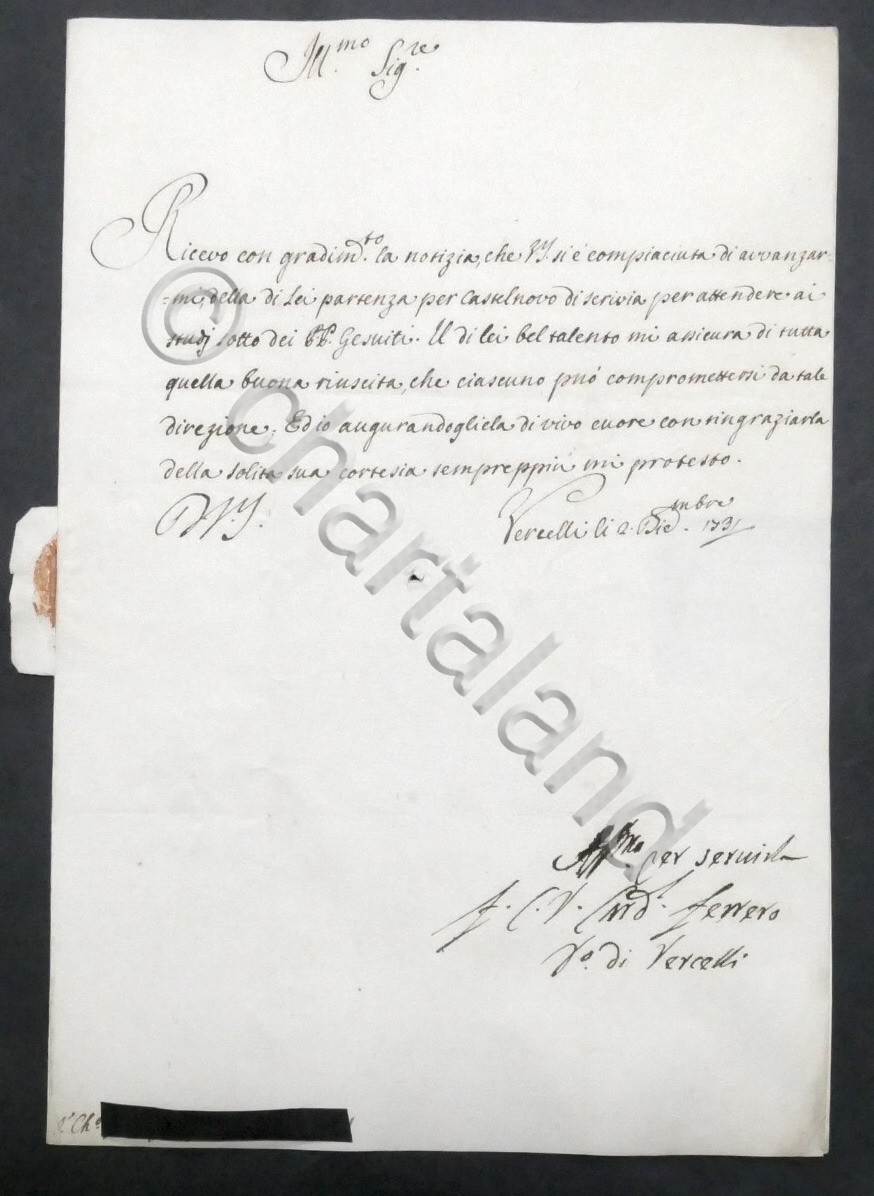 Ill.mo Sig.re
Ricevo con gradim.to la notizia, che V.S. si è compiaciuta di avvanzar=
=mi della di Lei partenza per Castelnovo di scrivia per attendere ai
studj sotto dei PP. Gesuiti. Il di lei bel talento mi assicura di tutta
quella buona riuscita, che ciascuno può compromettersi da tale
direzione. Ed io augurandogliela di vivo cuore con ringraziarla
della solita sua cortesia sempreppiù mi protesto.
D.V.S.
Vercelli li 2. Dic.mbre 1731
Aff.mo per servirla
F. C. V. Card. Ferrero
V.o di Vercelli
© chartaland